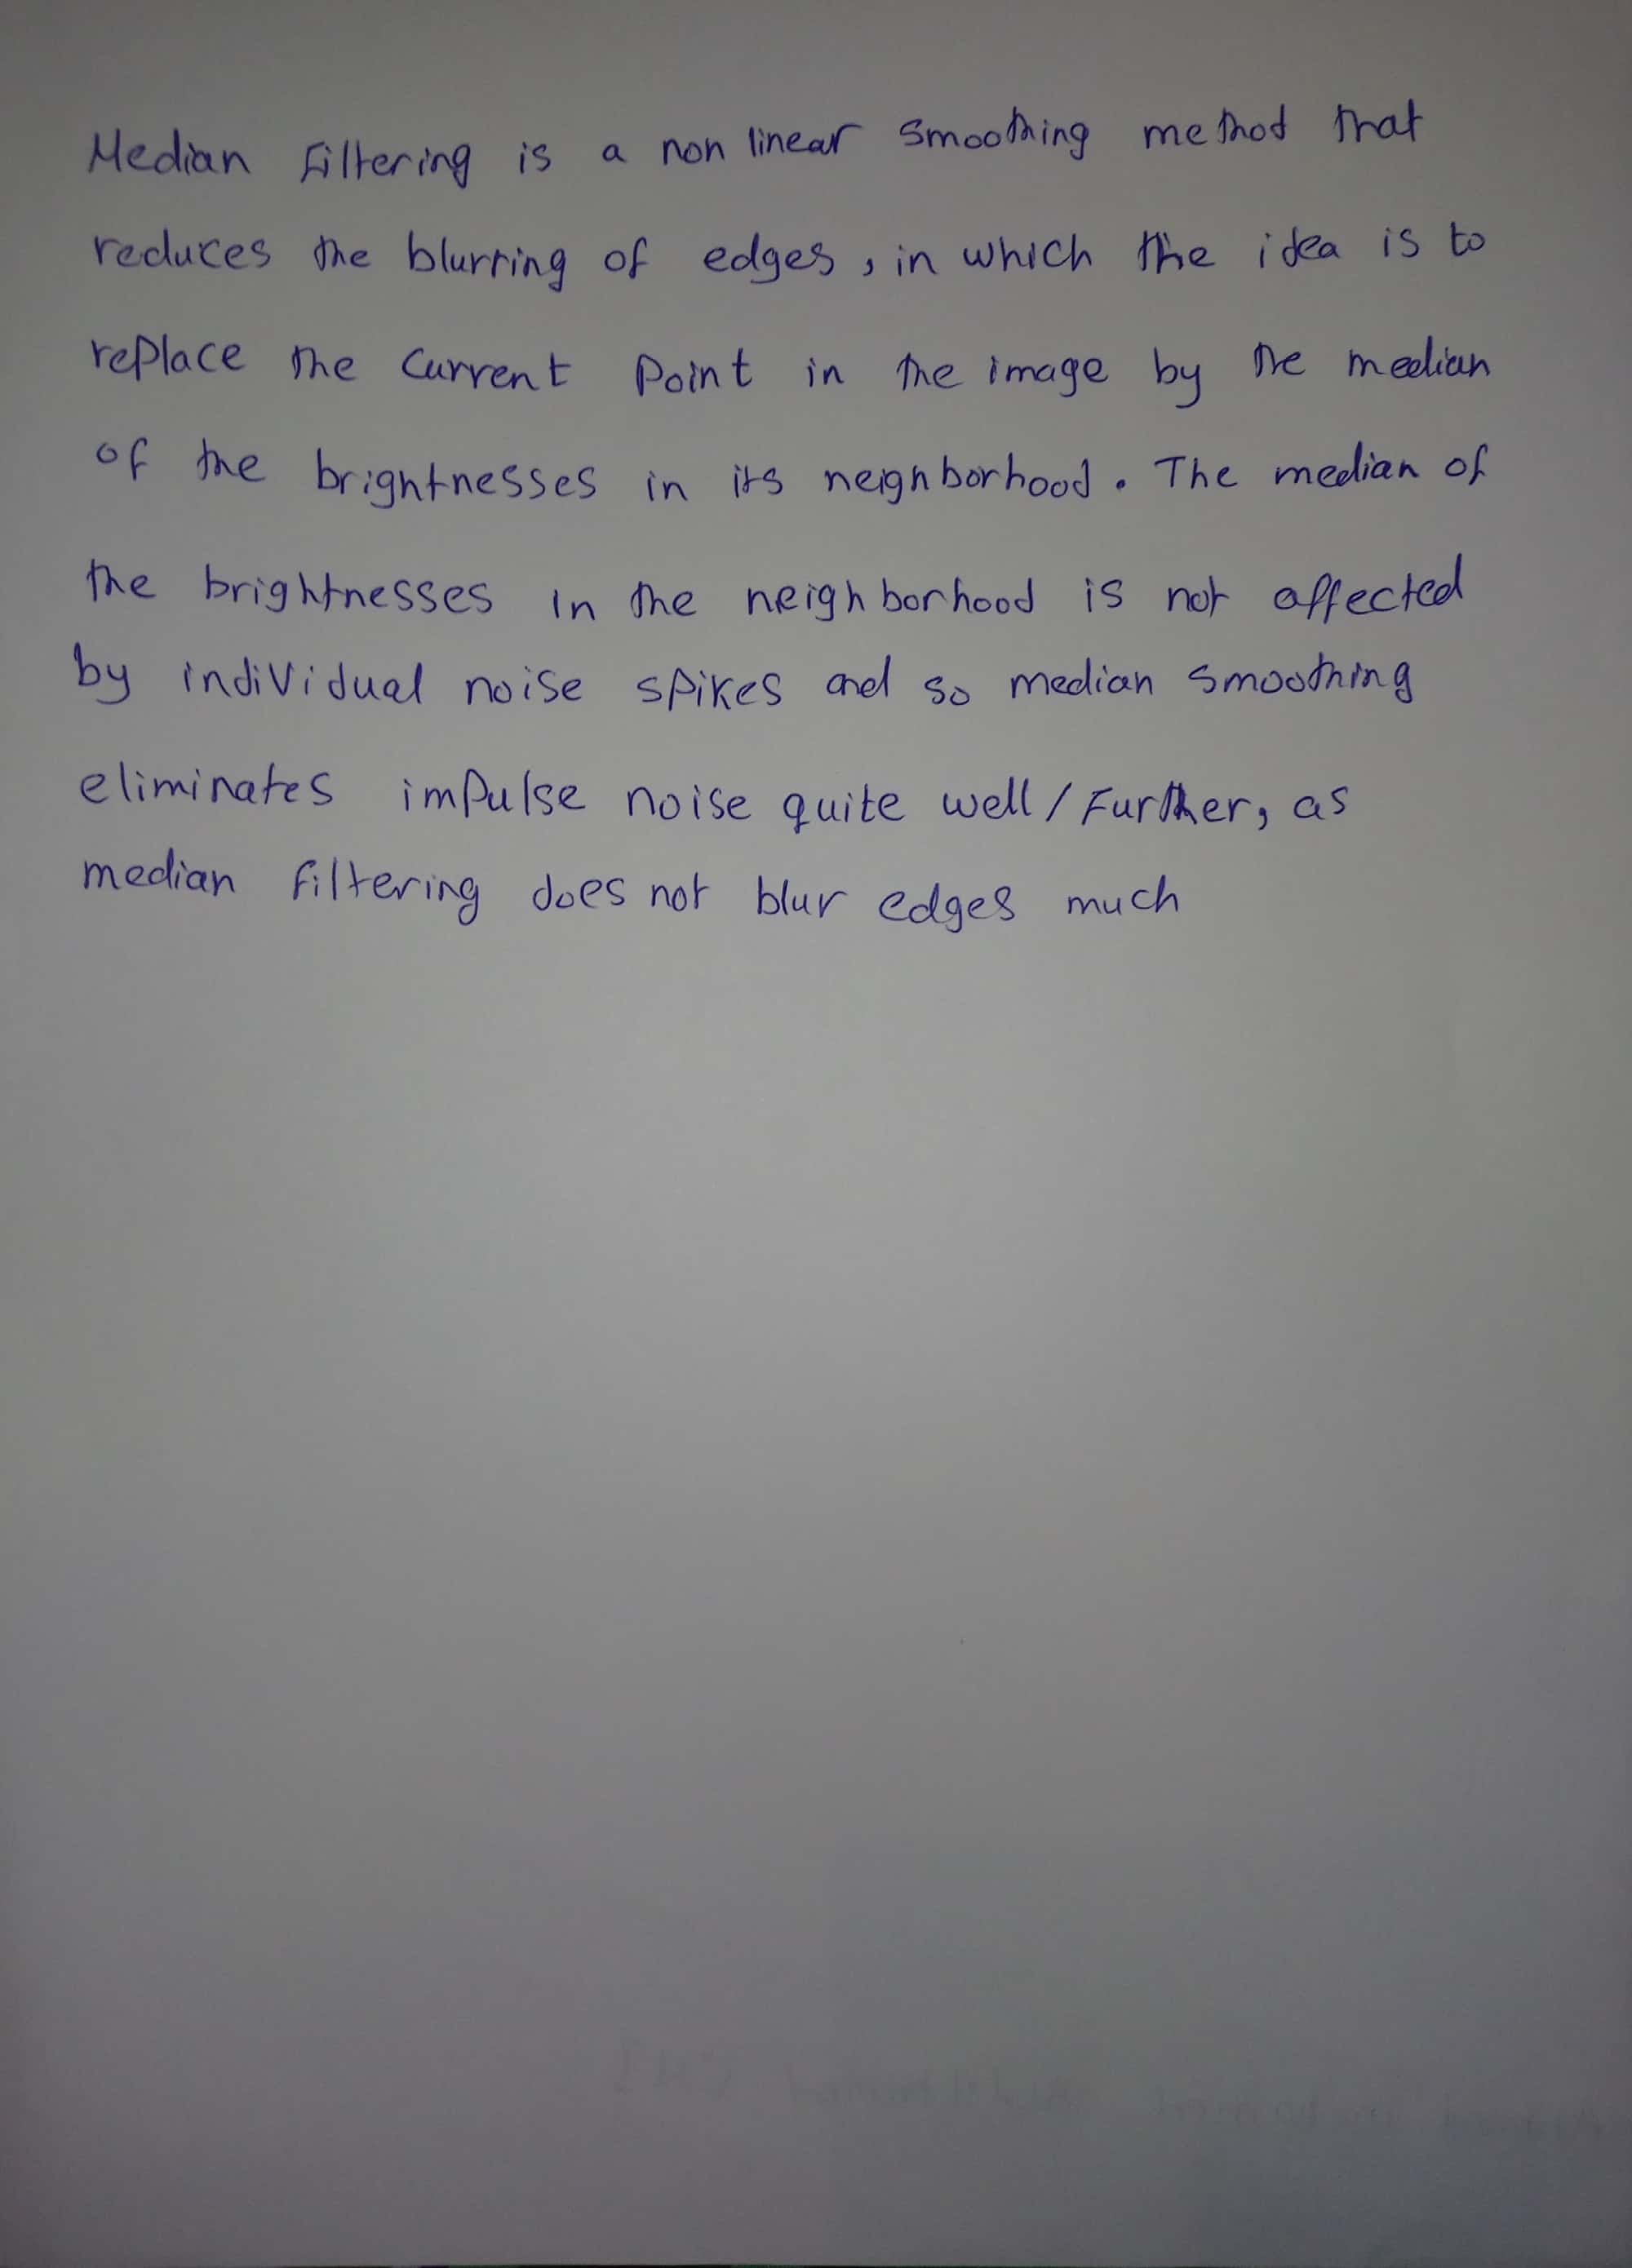 Median Filtering is a non linear smoothing method that
reduces the blurring of edges, in which the idea is to
replace the current Point in the image by the median
of the brightnesses in its neighborhood. The median of
the brightnesses in the neighborhood is not affected
by individual noise spikes and so median smoothing
eliminates impulse noise quite well/Further, as
median filtering does not blur edges much